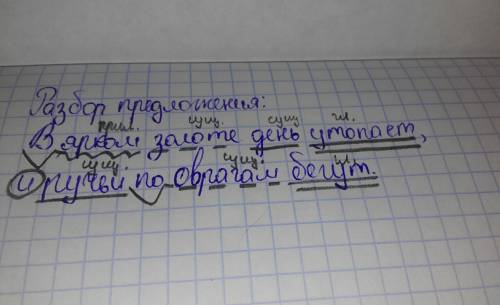 Разбор предложения:
прил. сущ. сущ гл.
В ярком золоте день утопает,
сущ. сущ. гл.
и ручьи по оврагам бегут.